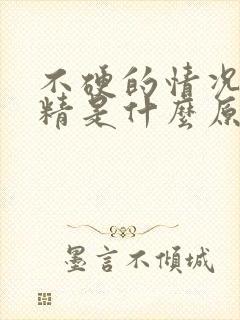 不硬的情况
精是什麼原
墨言不傾城